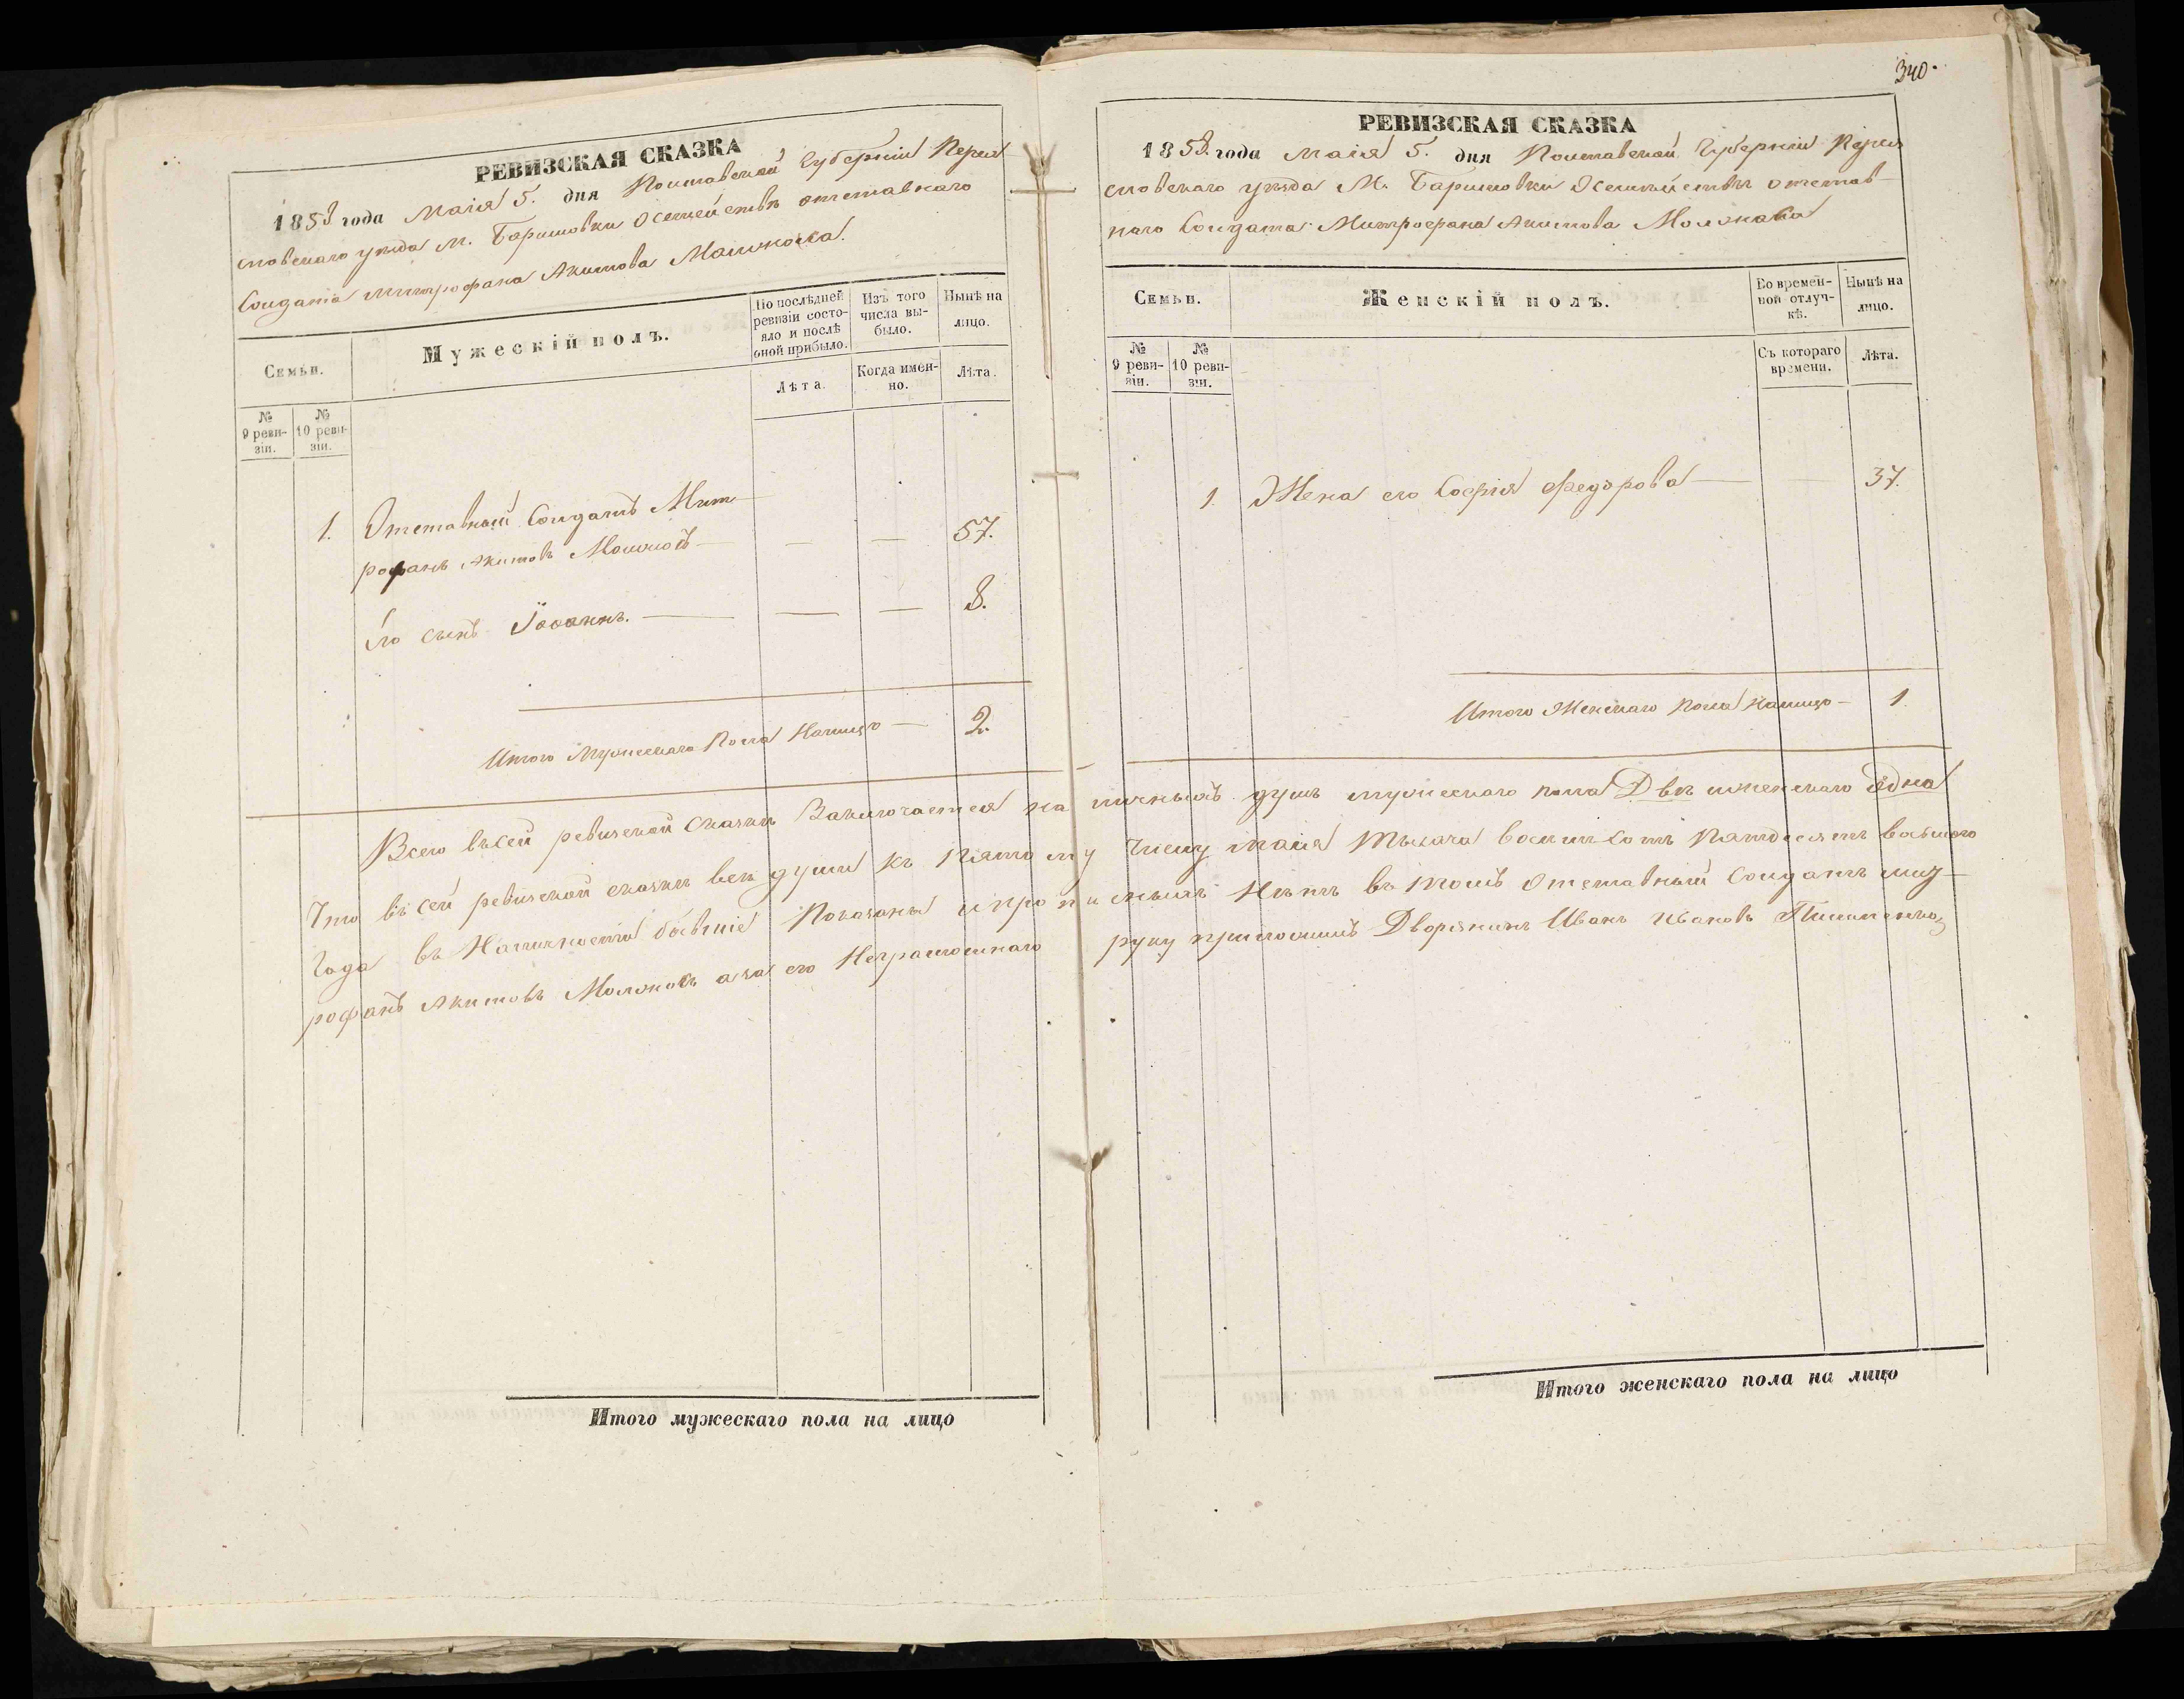 340.
РЕВИЗСКАЯ СКАЗКА
1858 года Маія 5. дня Полтавской Губерніи Перея
словскаго уѣзда М. Баришовки Осемействѣ отставнаго
Солдата Митрофана Акимова Молокова.
Семьи.
Мужескій полъ.
По послѣдней ревизіи состояло и послѣ оной прибыло.
Изъ того числа выбыло.
Нынѣ на лицо.
№ 9 ревизіи.
№ 10 ревизіи.
Лѣта.
Когда именно.
Лѣта.
1. Отставный Солдатъ Мит
рофанъ Акимовъ Молоковъ — — — 57.
Его сынъ Іоаннъ. — — — 8.
Итого Мужескаго Пола Налицо — 2.
РЕВИЗСКАЯ СКАЗКА
1858 года Маія 5. дня Полтавской Губерніи Перея
словскаго уѣзда М. Баришовки Осемействѣ отстав-
наго Солдата Митрофана Акимова Молокова
Семьи.
Женскій полъ.
Во временной отлучкѣ.
Нынѣ на лицо.
№ 9 ревизіи.
№ 10 ревизіи.
Съ котораго времени.
Лѣта.
1. Жена его Софія Федорова — — 37.
Итого Женскаго Пола Налицо — 1.
Всего въсей ревизской сказкѣ Заключается наличныхъ душъ мужескаго пола Двѣ иженскаго Одна
Что въ сей ревизской сказкѣ всѣ души къ Пятому Числу маія Тысяча восимъ сотъ Пятдесятъ восьмаго
Года въ Наличности бывшіе Показаны ипрописныхъ Нѣтъ въ томъ Отставный Солдатъ Мит-
рофанъ Акимовъ Молоковъ аза его Неграмотнаго руку приложилъ Дворянинъ Иванъ Ивановъ
Итого мужескаго пола на лицо
Итого женскаго пола на лицо